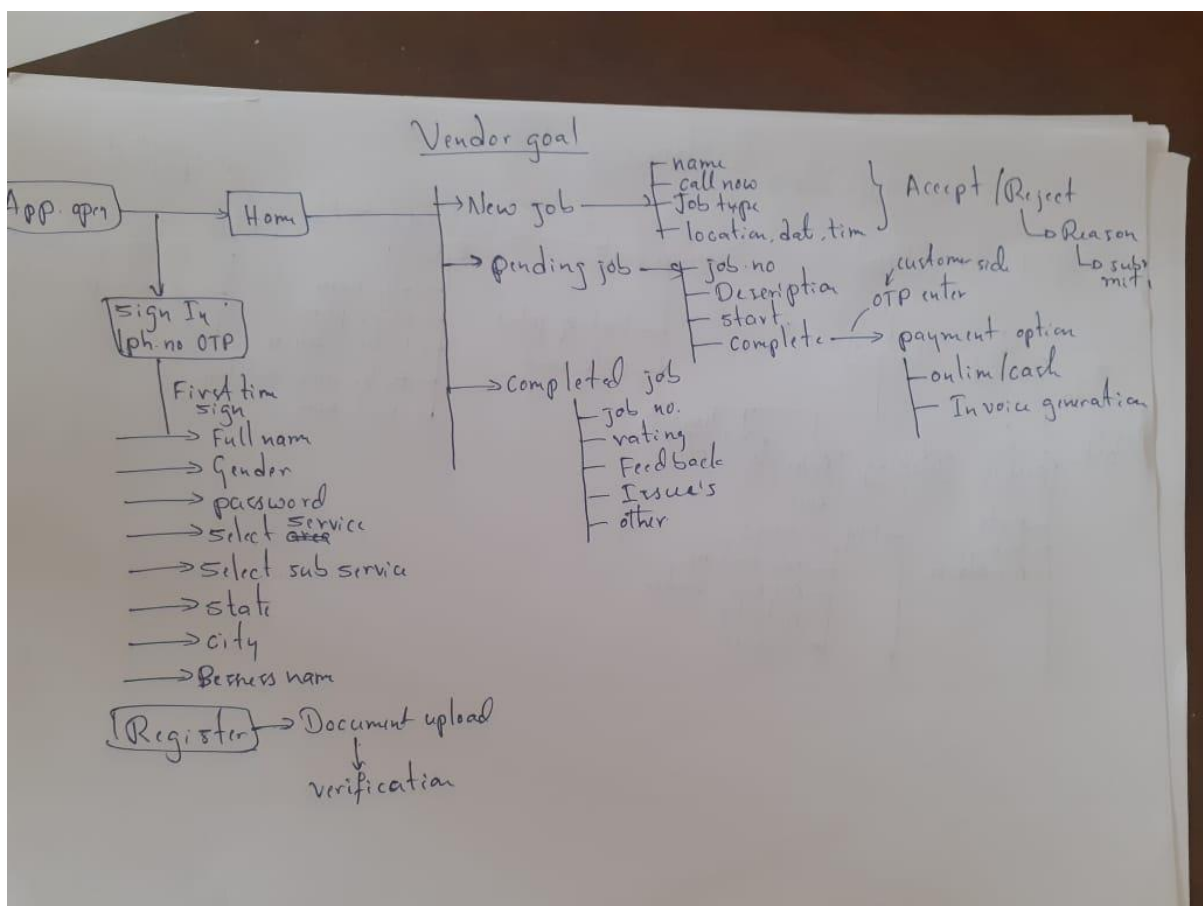 Vendor goal
App. open
Home
Sign In
ph. no OTP
First tim
sign
Full nam
Gender
password
select service
select sub service
state
city
Besness nam
Register
Document upload
verification
New job
name
call now
Job type
location, dat, tim
Accept / Reject
Reason
submit
pending job
job no
Description
start
complete
customer sid
OTP enter
payment option
onlin/cash
Invoice generation
completed job
job no.
rating
Feedback
Issue's
other